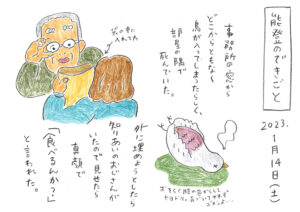 能登のできごと
2023.
1月14日(土)
事務所の窓から
どこからともなく
鳥が入ってしまったらしく、
部屋の隅で
死んでいた。
外に埋めようとしたら
知りあいのおじさんが
いたので見せたら
真顔で
「食べるんか?」
と言われた。
袋の中に
入れてた